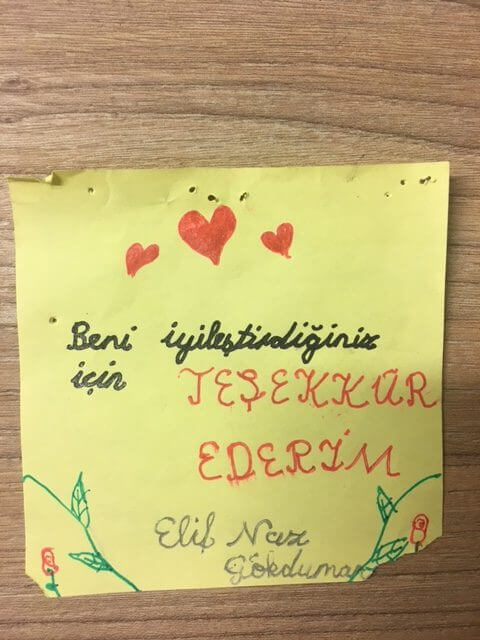 Beni iyileştirdiğiniz
için TEŞEKKÜR
EDERİM
Elif Naz
Gökduman